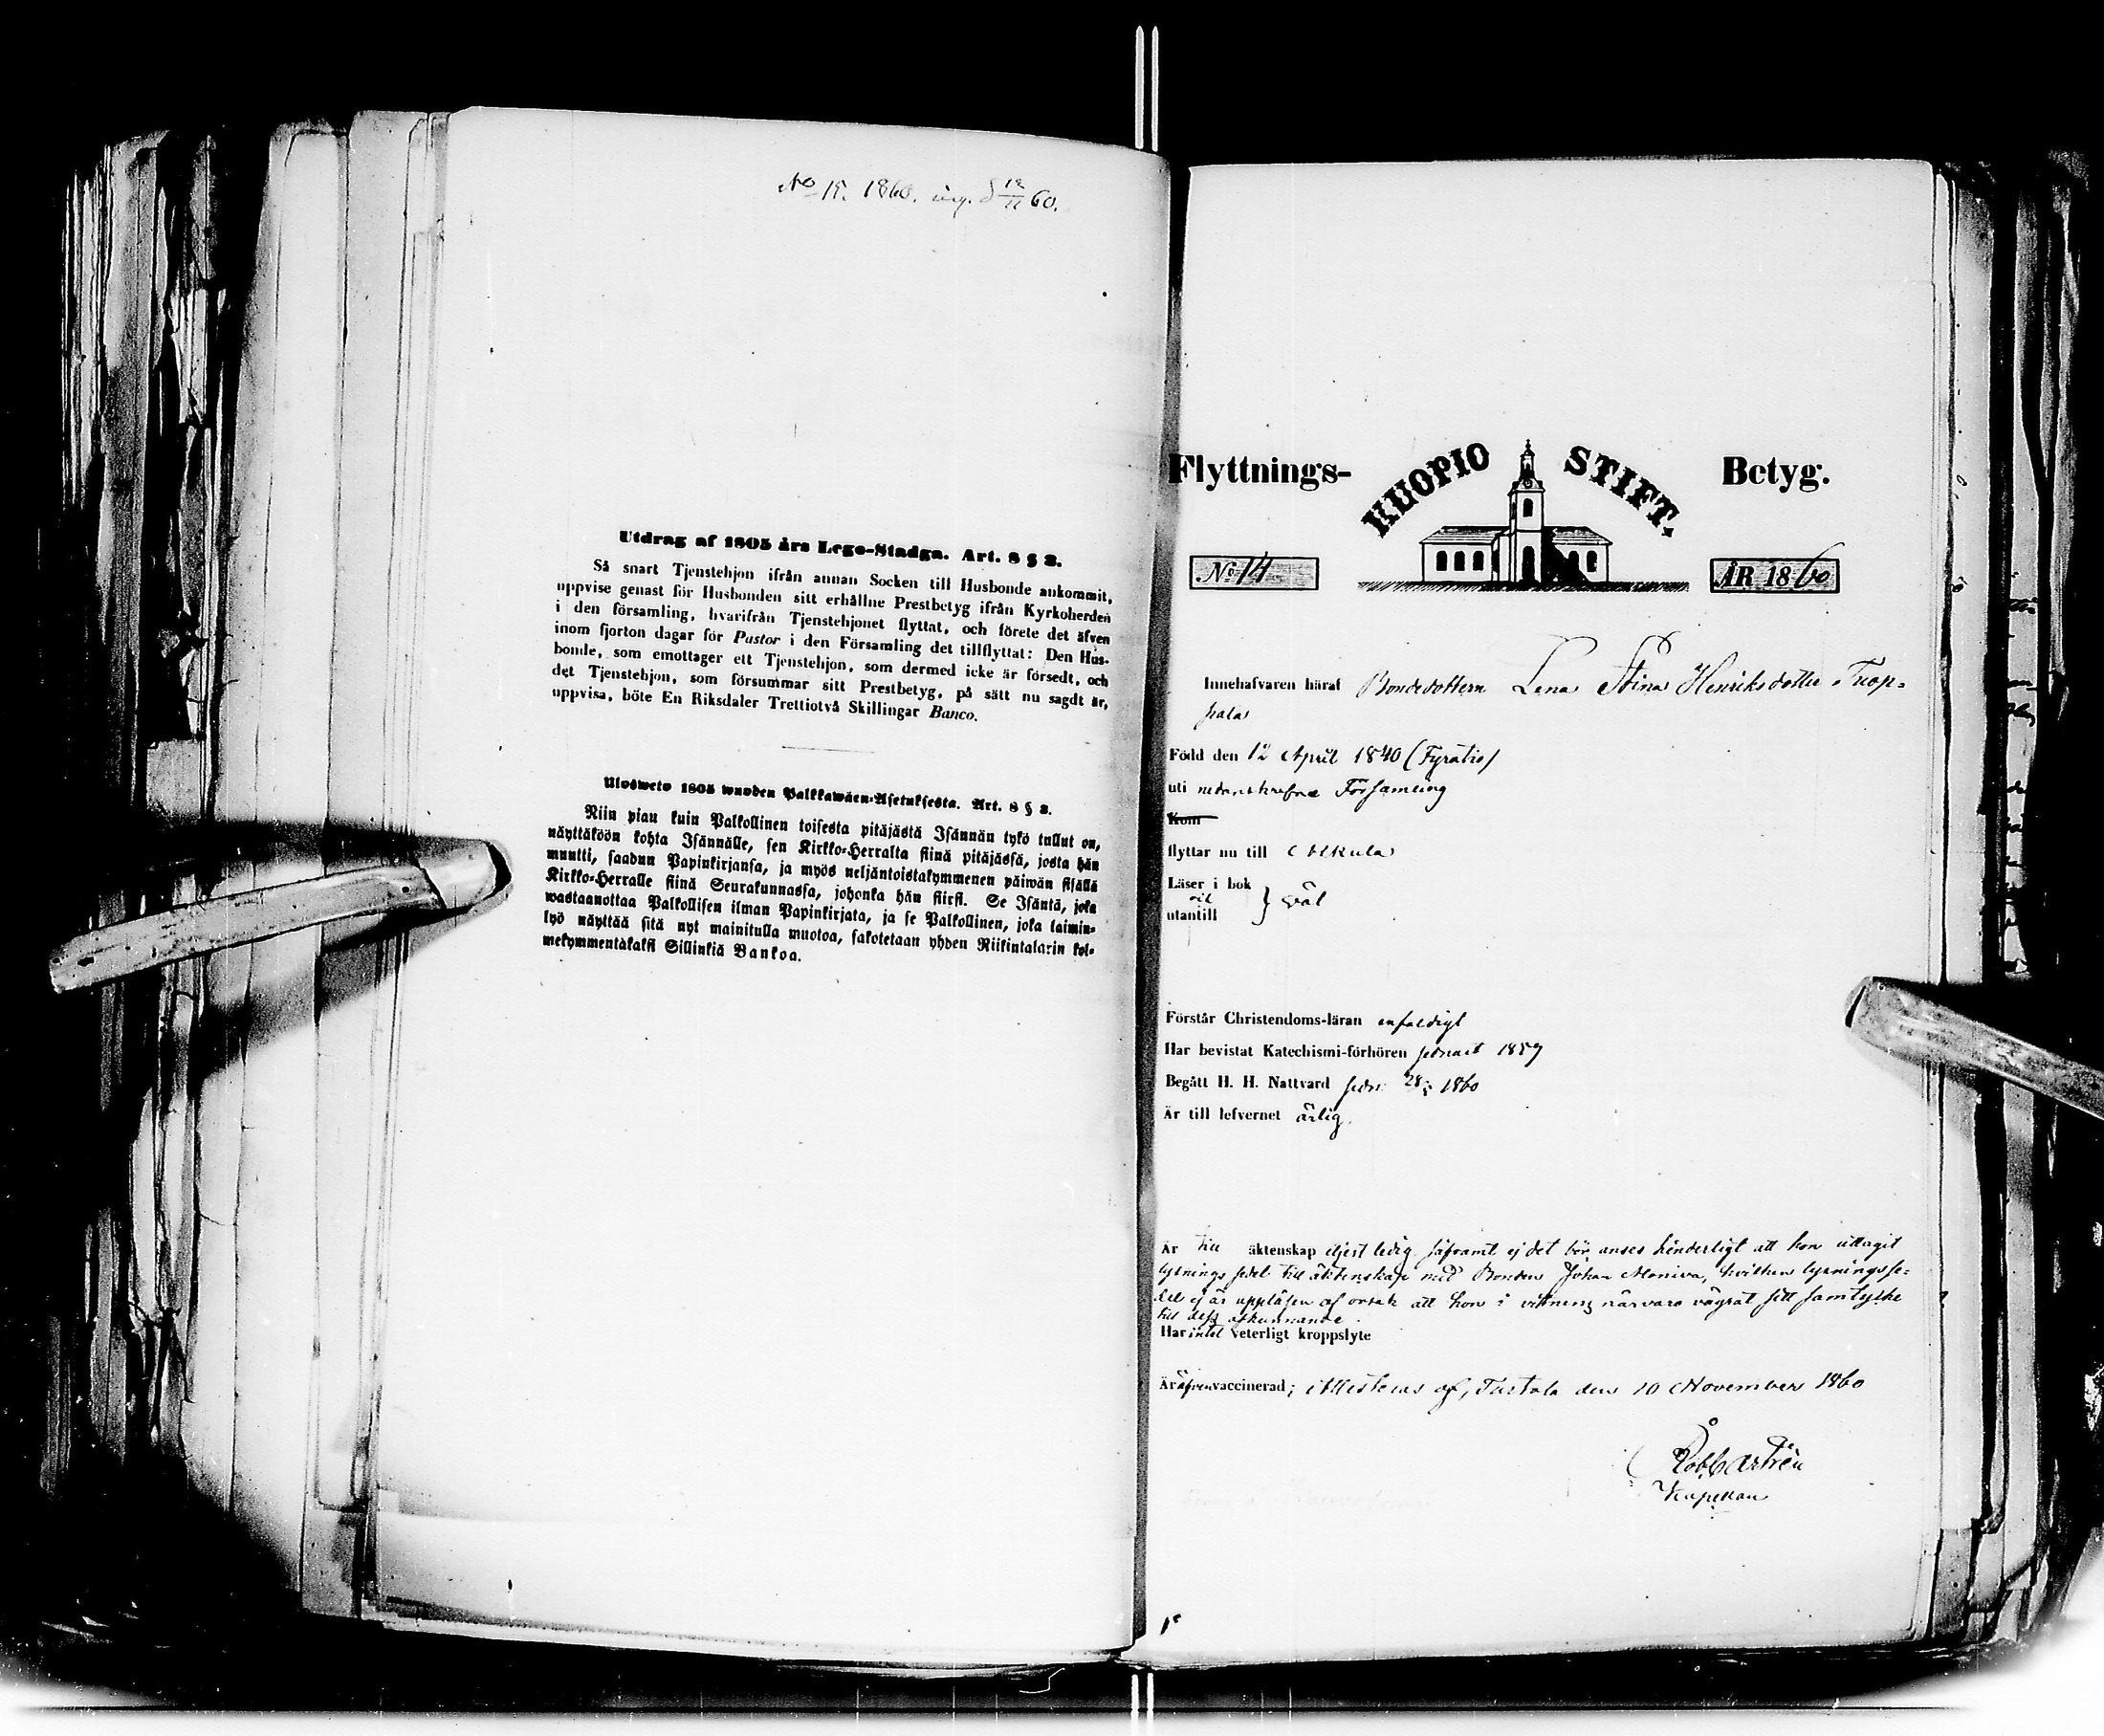 No 15. 1860. ing. d 12/11 60.
Utdrag af 1805 års Lego-Stadga. Art. 8 § 2.
Så snart Tjenstehjon ifrån annan Socken till Husbonde ankommit,
uppvise genast för Husbonden sitt erhållne Prestbetyg ifrån Kyrkoherden
i den församling, hvarifrån Tjenstehjonet flyttat, och förete det äfven
inom fjorton dagar för Pastor i den Församling det tillflyttat: Den Hus-
bonde, som emottager ett Tjenstehjon, som dermed icke är försedt, och
det Tjenstehjon, som försummar sitt Prestbetyg, på sätt nu sagdt är,
uppvisa, böte En Riksdaler Trettiotvå Skillingar Banco.
Ulosweto 1805 wuoden Palkkawäen-Asetuksesta. Art. 8 § 2.
Niin pian kuin Palkollinen toisesta pitäjästä Isännän tykö tullut on,
näyttäköön kohta Isännälle, sen Kirkko-Herralta siinä pitäjässä, josta hän
muutti, saadun Papinkirjansa, ja myös neljäntoistakymmenen päiwän sisällä
Kirkko-Herralle siinä Seurakunnassa, johonka hän siirsi. Se Isäntä, joka
wastaanottaa Palkollisen ilman Papinkirjata, ja se Palkollinen, joka laimin-
lyö näyttää sitä nyt mainitulla muotoa, sakotetaan yhden Riikintalarin kol-
mekymmentäkaksi Sillinkiä Bankoa.
Flyttnings- KUOPIO STIFT. Betyg.
No 14 ÅR 1860
Innehafvaren häraf Bondedottern Lena Stina Henriksdotter Tuop-
pala
Född den 12 April 1840 (Fyratio)
uti nedanskrefne Församling
Kom
flyttar nu till
Läser i bok
och } väl
utantill
Förstår Christendoms-läran enfaldigt
Har bevistat Katechismi-förhören sednast 1859
Begått H. H. Nattvard sedn. 28/5 1860
Är till lefvernet ärlig.
Är till äktenskap eljest ledig såframt ej det bör anses hinderligt att hon uttagit
lysnings sedel till äktenskap med Bonden Johan Moniva, hvilken lysningsse-
del ej är uppläsen af orsak att hon i vittnens närvaro vägrat sitt samtycke
till dess afkunnande.
Har intet veterligt kroppslyte
Är äfven vaccinerad; Attesteras af, Turtola den 10 November 1860
Kapellan